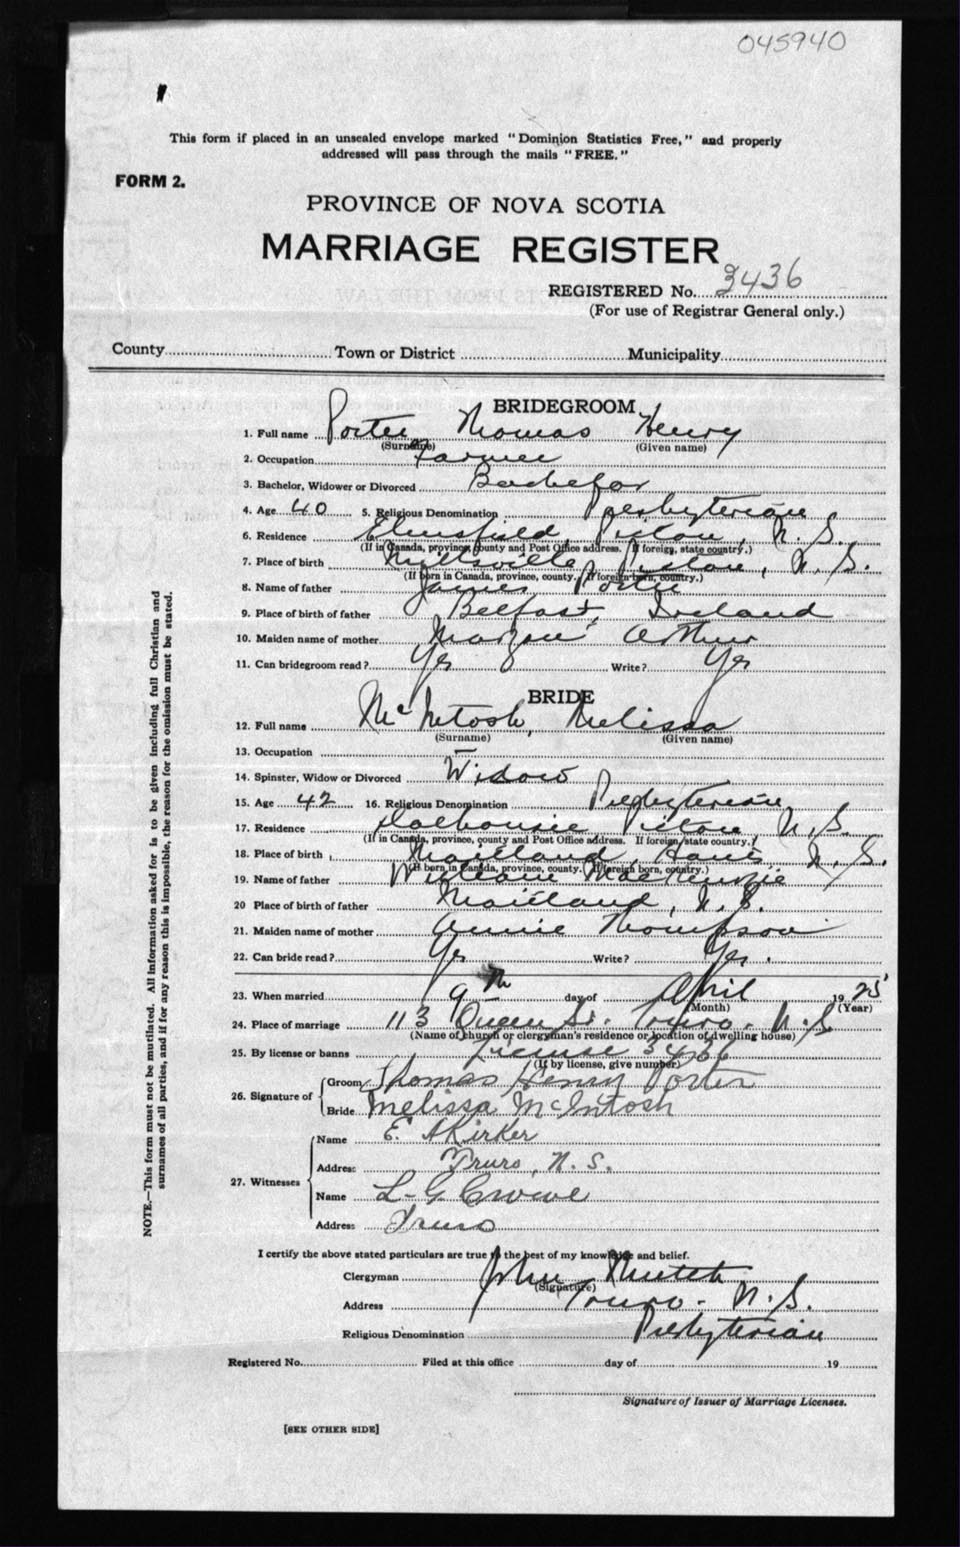 045940
This form if placed in an unsealed envelope marked "Dominion Statistics Free," and properly
addressed will pass through the mails "FREE."
FORM 2.
PROVINCE OF NOVA SCOTIA
MARRIAGE REGISTER
REGISTERED No. 3436
(For use of Registrar General only.)
County Town or District Municipality
BRIDEGROOM
1. Full name Porter Thomas Henry
(Surname) (Given name)
2. Occupation Farmer
3. Bachelor, Widower or Divorced Bachelor
4. Age 40 5. Religious Denomination Presbyterian
6. Residence Elmsfield, Pictou, N.S.
(If in Canada, province, county and Post Office address. If foreign, state country.)
7. Place of birth Pictou, N.S.
(If born in Canada, province, county. If foreign born, country.)
8. Name of father James Porter
9. Place of birth of father Belfast, Ireland
10. Maiden name of mother Arthur
11. Can bridegroom read? Yes Write? Yes
BRIDE
12. Full name McIntosh, Melissa
(Surname) (Given name)
13. Occupation —
14. Spinster, Widow or Divorced Widow
15. Age 42 16. Religious Denomination Presbyterian
17. Residence Dalhousie Pictou, N.S.
(If in Canada, province, county and Post Office address. If foreign state country.)
18. Place of birth Maitland, Hants N.S.
(If born in Canada, province, county. If foreign born, country.)
19. Name of father William MacKenzie
20 Place of birth of father Maitland, N.S.
21. Maiden name of mother Annie Thompson
22. Can bride read? Yes Write? Yes.
23. When married 9th day of April 1925
(Month) (Year)
24. Place of marriage 113 Queen St. Truro. N.S
(Name of church or clergyman's residence or location of dwelling house)
25. By license or banns License 3436
(If by license, give number)
26. Signature of Groom Thomas Henry Porter
Bride Melissa McIntosh
27. Witnesses Name E. A Kirker
Address Truro, N.S.
Name L-G Crowe
Address Truro
I certify the above stated particulars are true to the best of my knowledge and belief.
Clergyman John Mutch
(Signature)
Address Truro. N.S.
Religious Denomination Presbyterian
Registered No. Filed at this office day of 19
Signature of Issuer of Marriage Licenses.
[SEE OTHER SIDE]
NOTE.—This form must not be mutilated. All information asked for is to be given including full Christian and
surnames of all parties, and if for any reason this is impossible, the reason for the omission must be stated.